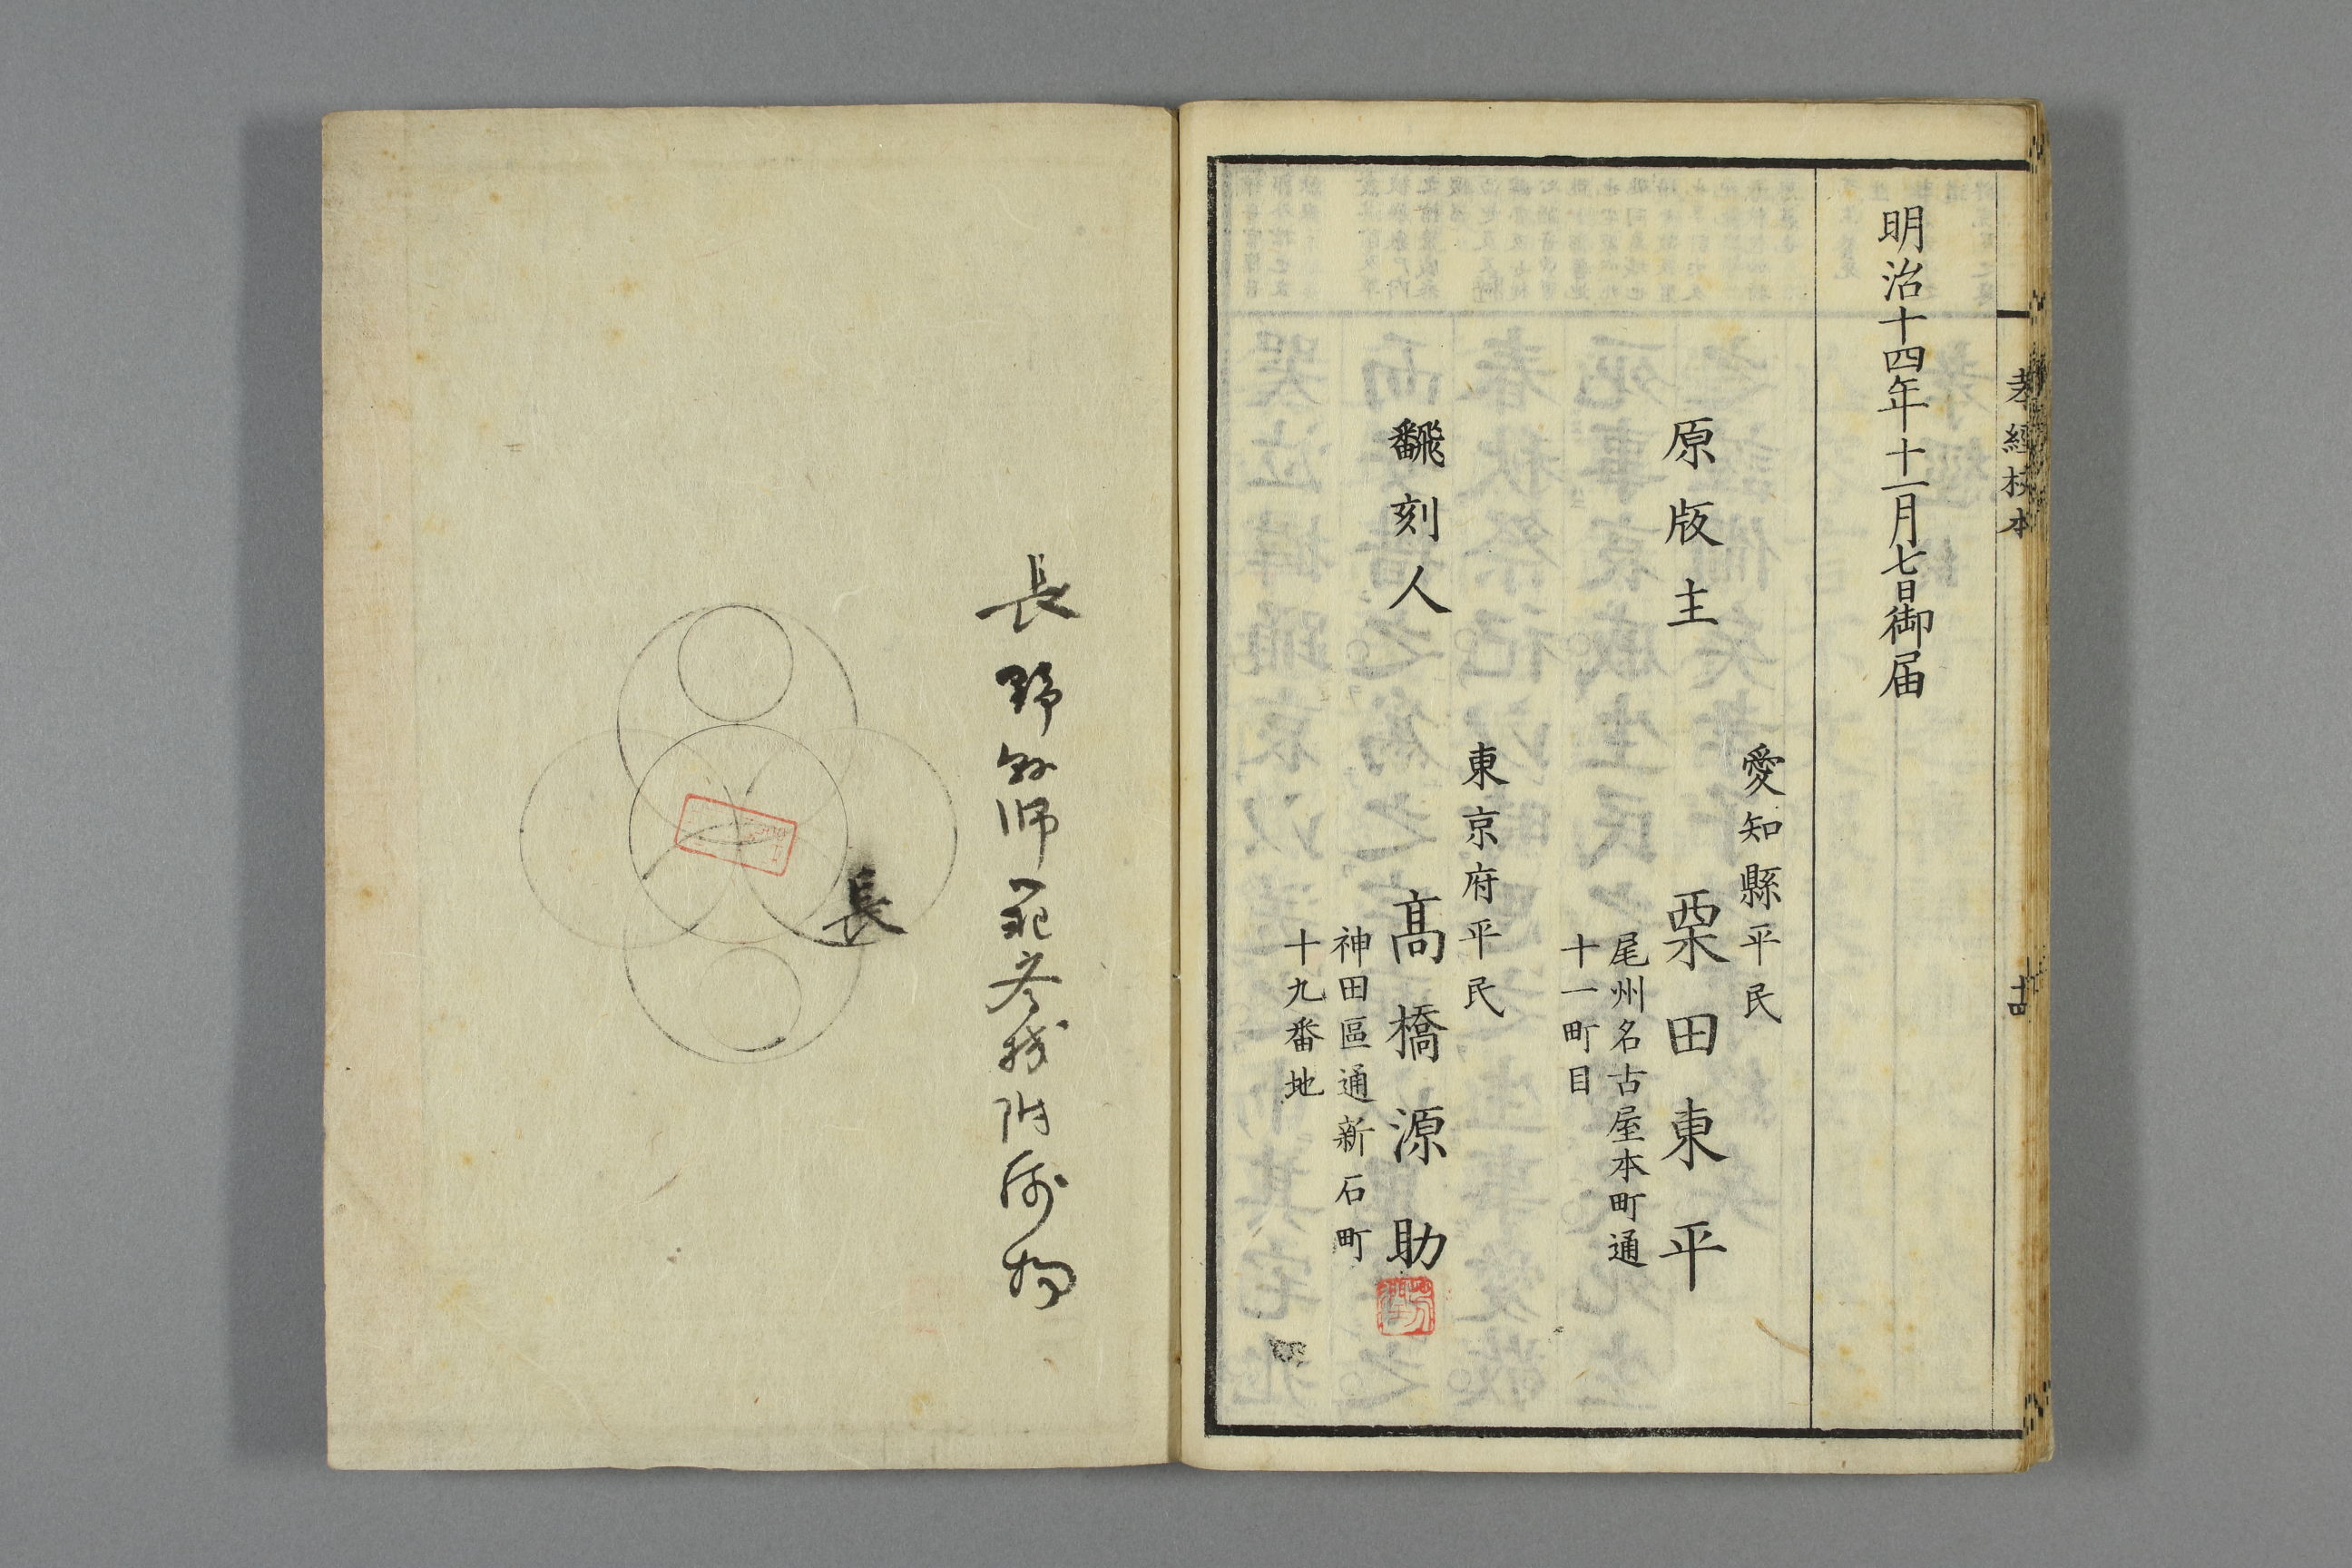 孝經校本
十四
明治十四年十一月七日御届
愛知縣平民
原版主
栗田東平
尾州名古屋本町通
十一町目
東京府平民
飜刻人
髙橋源助
神田區通新石町
十九番地
長野縣師範学校附属
長